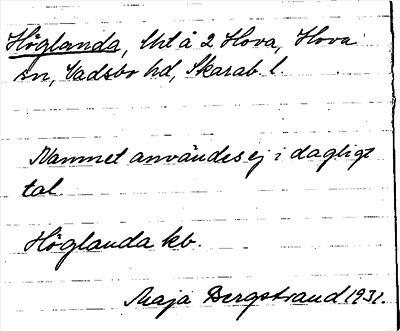 Höglanda, Uht å 2 Hova, Hova
sn, Vadsbo hd, Skarab. l.
Namnet användes ej i dagligt
tal
Höglanda kb.
Maja Bergstrand 1931.